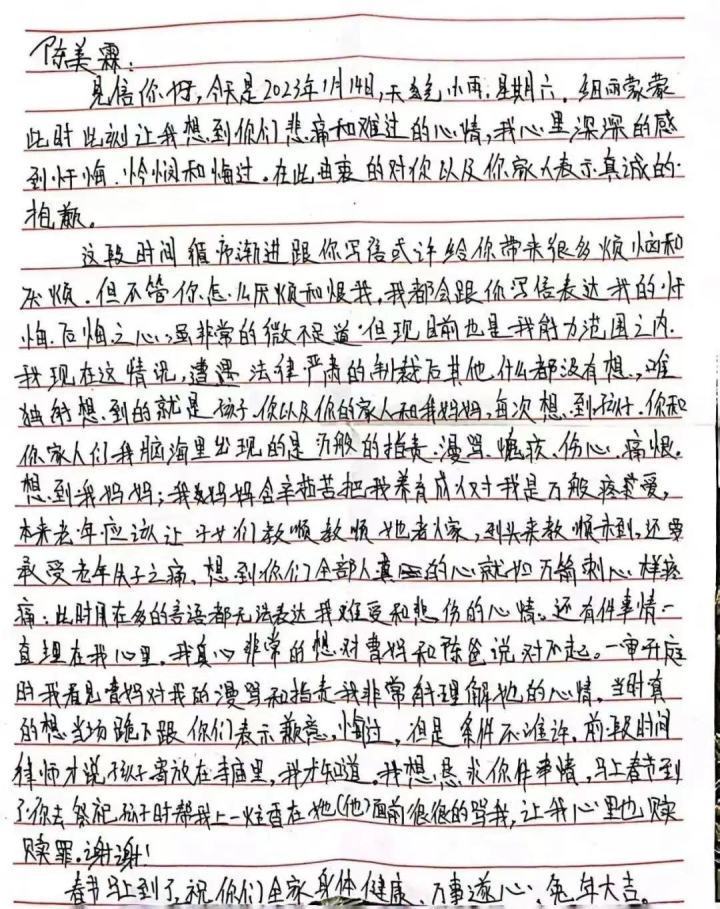 陈美霖：
见信你好，今天是2023年1月14日，天气小雨，星期六，细雨蒙蒙
此时此刻让我想到你们悲痛和难过的心情，我心里深深的感
到忏悔、怜悯和悔过。在此由衷的对你以及你家人表示真诚的
抱歉。
这段时间循序渐进跟你写信或许给你带来很多烦恼和
厌烦。但不管你怎么厌烦和恨我，我都会跟你写信表达我的忏
悔、后悔之心，虽非常的微不足道，但现目前也是我能力范围之内。
我现在这情况，遭遇法律严肃的制裁后其他什么都没有想，唯
独能想到的就是孩子、你以及你的家人和我妈妈，每次想到孩子、你和
你家人们我脑海里出现的是万般的指责、漫骂、愧疚、伤心、痛恨。
想到我妈妈；我妈妈含辛茹苦把我养育成人对我是万般疼爱，
本来老年应该让子女们教顺教顺她老人家，到头来教顺未到，还要
承受老年失子之痛，想到你们全部人真的心就如万箭刺心样疼
痛；此时用在多的言语都无法表达我难受和悲伤的心情。还有件事情一
直埋在我心里，我真心非常的想对曹妈和陈爸说对不起。一审开庭
时我看见曹妈对我的漫骂和指责我非常能理解她的心情，当时真
的想当场跪下跟你们表示歉意、悔过，但是条件不准许，前段时间
律师才说孩子寄放在寺庙里，我才知道。我想恳求你件事情，马上春节到
了你去祭祀孩子时帮我上一炷香在她(他)面前很很的骂我，让我心里也赎
赎罪。谢谢！
春节马上到了，祝你们全家身体健康、万事遂心、兔年大吉。